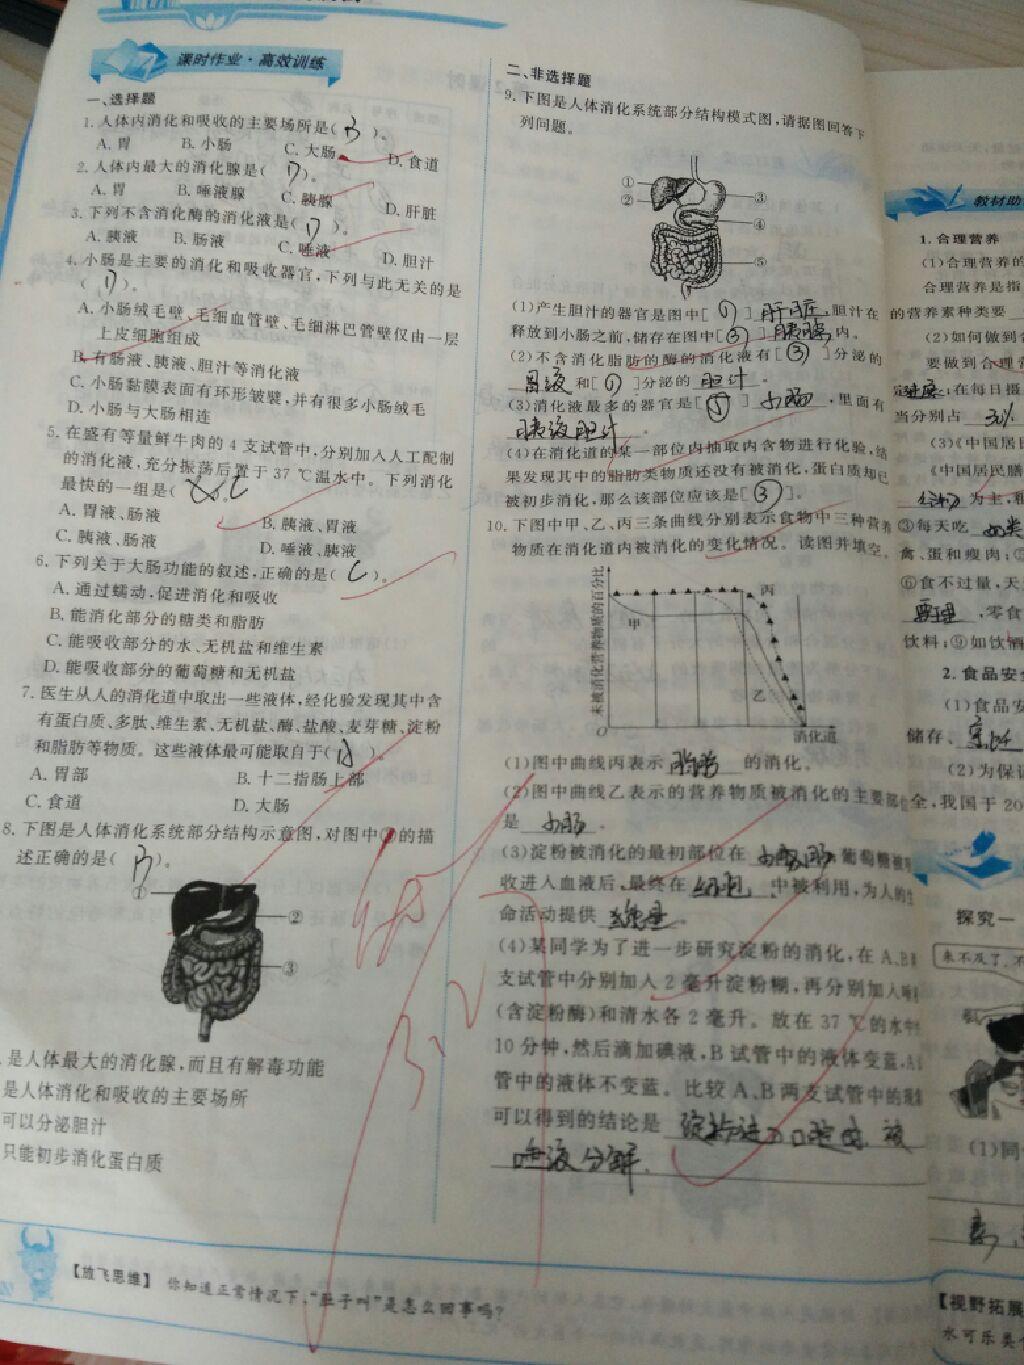 课时作业·高效训练
一、选择题
1.人体内消化和吸收的主要场所是( B )。
A.胃 B.小肠 C.大肠 D.食道
2.人体内最大的消化腺是( D )。
A.胃 B.唾液腺 C.胰腺 D.肝脏
3.下列不含消化酶的消化液是( D )。
A.胰液 B.肠液 C.唾液 D.胆汁
4.小肠是主要的消化和吸收器官,下列与此无关的是
( D )。
A.小肠绒毛壁、毛细血管壁、毛细淋巴管壁仅由一层
上皮细胞组成
B.有肠液、胰液、胆汁等消化液
C.小肠黏膜表面有环形皱襞,并有很多小肠绒毛
D.小肠与大肠相连
5.在盛有等量鲜牛肉的4支试管中,分别加入人工配制
的消化液,充分振荡后置于37 ℃温水中。下列消化
最快的一组是( C
A.胃液、肠液 B.胰液、胃液
C.胰液、肠液 D.唾液、胰液
6.下列关于大肠功能的叙述,正确的是( C )。
A.通过蠕动,促进消化和吸收
B.能消化部分的糖类和脂肪
C.能吸收部分的水、无机盐和维生素
D.能吸收部分的葡萄糖和无机盐
7.医生从人的消化道中取出一些液体,经化验发现其中含
有蛋白质、多肽、维生素、无机盐、酶、盐酸、麦芽糖、淀粉
和脂肪等物质。这些液体最可能取自于( )。
A.胃部 B.十二指肠上部
C.食道 D.大肠
8.下图是人体消化系统部分结构示意图,对图中的描
述正确的是( B )。
① ② ③
是人体最大的消化腺,而且有解毒功能
是人体消化和吸收的主要场所
可以分泌胆汁
只能初步消化蛋白质
【放飞思维】 你知道正常情况下,“肚子叫”是怎么回事吗?
二、非选择题
9.下图是人体消化系统部分结构模式图,请据图回答下
列问题。
① ② ③ ④ ⑤
(1)产生胆汁的器官是图中[ ① ] 肝脏 ,胆汁在
释放到小肠之前,储存在图中[ ③ ] 内。
(2)不含消化脂肪的酶的消化液有[ ③ ]分泌的
胃液 和[ ① ]分泌的 胆汁 。
(3)消化液最多的器官是[ ⑤ ] 小肠 ,里面有
胰液胆汁 。
(4)在消化道的某一部位内抽取内含物进行化验,结
果发现其中的脂肪类物质还没有被消化,蛋白质却已
被初步消化,那么该部位应该是[ ③ ]。
10.下图中甲、乙、丙三条曲线分别表示食物中三种营养
物质在消化道内被消化的变化情况。读图并填空。
未被消化营养物质的百分比
甲 乙 丙
O 消化道
(1)图中曲线丙表示 脂肪 的消化。
(2)图中曲线乙表示的营养物质被消化的主要部位
是 小肠 。
(3)淀粉被消化的最初部位在 葡萄糖被吸
收进入血液后,最终在 细胞 中被利用,为人的生
命活动提供 能量 。
(4)某同学为了进一步研究淀粉的消化,在A、B两
支试管中分别加入2毫升淀粉糊,再分别加入唾液
(含淀粉酶)和清水各2毫升。放在37 ℃的水中
10分钟,然后滴加碘液,B试管中的液体变蓝,A试
管中的液体不变蓝。比较A、B两支试管中的现象
可以得到的结论是 淀粉进入口腔 被
唾液分解.
教材助
1.合理营养
(1)合理营养的
合理营养是指
的营养素种类要
(2)如何做到合
要做到合理营
;在每日摄
当分别占 30%
(3)《中国居民
《中国居民膳
为主,粗
③每天吃
禽、蛋和瘦肉;⑤
⑥食不过量,天
,零食
饮料;⑨如饮酒
2.食品安全
(1)食品安
储存、
(2)为保证
全,我国于20
探究一
(1)同
【视野拓展
水可乐类